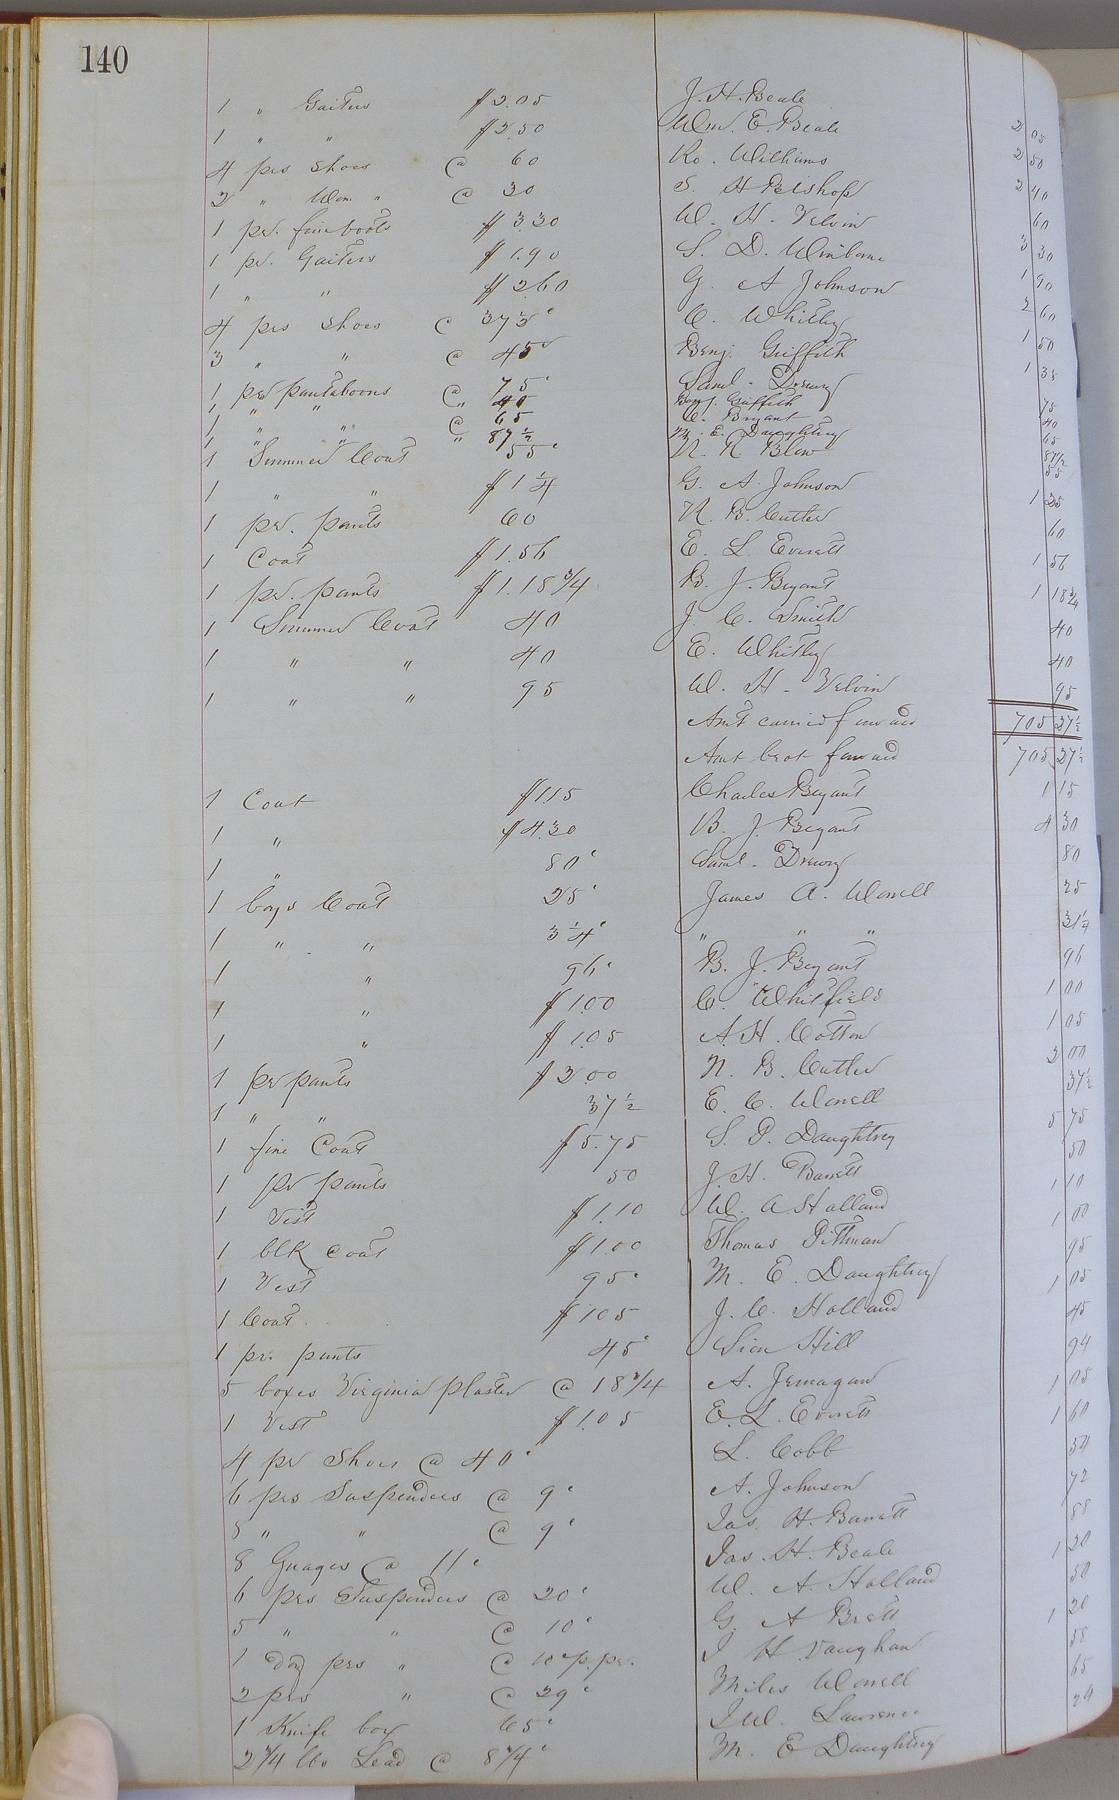 140
1 " Gaiters $2.05 J. H. Beale 2 05
1 " " $2.50 Wm. E. Beale 2 50
4 prs shoes @ 60 Ro. Williams 2 40
2 " Wom. " @ 30 S. H Bishop 60
1 pr. fine boots $3.30 W. H. Velvin 3 30
1 pr. Gaiters $1.90 S. D. Winborne 1 90
1 " " $2.60 G. A Johnson 2 60
4 prs shoes @ 37½ c C. Whitley 1 50
3 " " @ 45 c Benj. Griffith 1 35
1 pr pantaloons @ 75 c Saml. Drewry 75
1 " " @ 40 Benj. Griffith 40
1 " " @ 65 C. Bryant 65
1 " " " 87½ M. E. Daughtry 87½
1 Summer Coat 55 c N. R Blow 55
1 " " $1¼ G. A. Johnson 1 25
1 pr. pants 60 N. B. Cutler 60
1 Coat $1.56 E. L. Everett 1 56
1 pr. pants $1.18¾ B. J. Bryant 1 18¾
1 Summer Coat 40 J. C. Smith 40
1 " " 40 E. Whitley 40
1 " " 95 W. H. Velvin 95
Amt carried forward 705 27½
Amt brot forward 705 27½
1 Coat $1.15 Charles Bryant 1 15
1 " $4.30 B. J. Bryant 4 30
1 " 80 c Saml. Drewry 80
1 boys Coat 25 c James A. Worrell 25
1 " " 31¼ c " " " 31¼
1 " 96 c B. J. Bryant 96
1 " $1.00 C. Whitfield 1 00
1 " $1.05 A. H. Cotton 1 05
1 pr pants $2.00 N. B. Cutler 2 00
1 " " 37½ E. C. Worrell 37½
1 fine Coat $5.75 S. P. Daughtrey 5 75
1 pr pants 50 J. H. Barrett 50
1 Vest $1.10 W. A Holland 1 10
1 blk Coat $1.00 Thomas Pittman 1 00
1 Vest 95 c M. E. Daughtry 95
1 Coat $1.05 J. C. Holland 1 05
1 pr. pants 45 c Sion Hill 45
5 boxes Virginia plaster @ 18¾ A. Jernagan 94
1 Vest $1.05 E. L. Everett 1 05
4 pr Shoes @ 40 c L. Cobb 1 60
6 prs Suspenders @ 9 c A. Johnson 54
8 " " @ 9 c Jas. H. Barrett 72
8 Guages @ 11 c Jas. H. Beale 88
6 prs Suspenders @ 20 c W. A. Holland 1 20
5 " " @ 10 c G. A Brett 50
1 Doz prs " @ 10 c p. pr. J H. Vaughan 1 20
2 prs " @ 29 c Miles Worrell 58
1 Knife box 65 c J W. Lawrence 65
2¾ lbs Lead @ 8¾ c M. E Daughtry 24